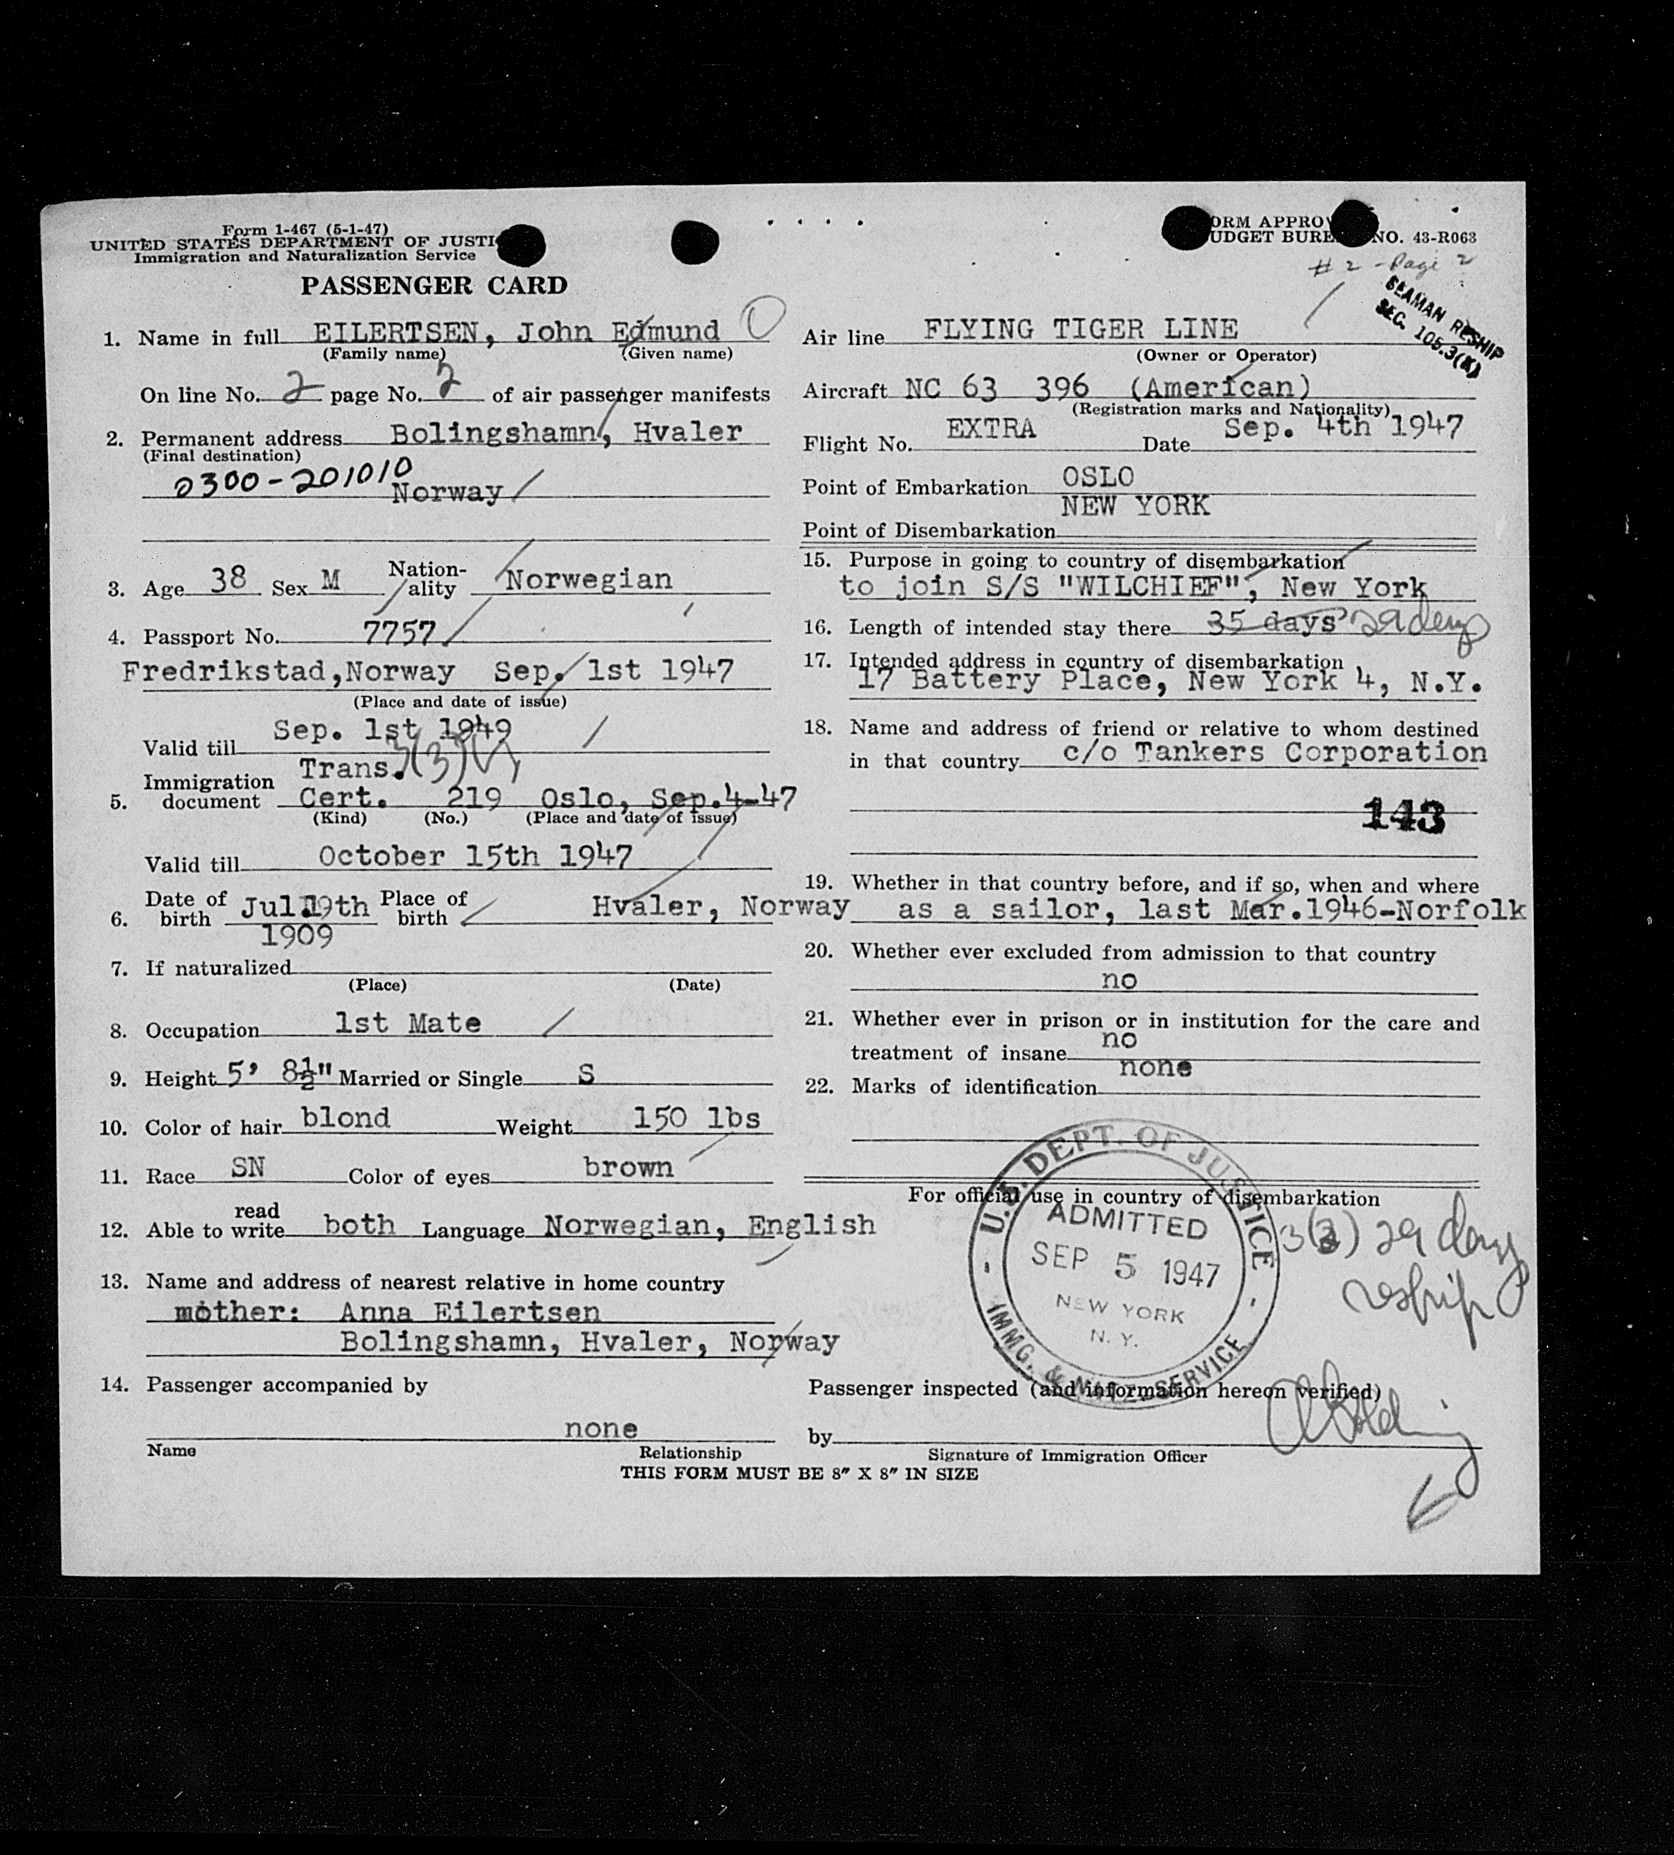 Form 1-467 (5-1-47)
UNITED STATES DEPARTMENT OF JUSTI
Immigration and Naturalization Service
PASSENGER CARD
ORM APPROV
UDGET BURE NO. 43-R063
# 2 - Page 2
SEAMAN RESHIP
SEC. 105.3(K)
1. Name in full EILERTSEN, John Edmund
(Family name) (Given name)
On line No. 2 page No. 2 of air passenger manifests
2. Permanent address Bolingshamn, Hvaler
(Final destination)
0300-201010
Norway
3. Age 38 Sex M Nation-ality Norwegian
4. Passport No. 7757
Fredrikstad,Norway Sep. 1st 1947
(Place and date of issue)
Valid till Sep. 1st 1949
Trans.
5. Immigration document Cert. 219 Oslo, Sep.4-47
(Kind) (No.) (Place and date of issue)
Valid till October 15th 1947
6. Date of birth Jul.19th 1909 Place of birth Hvaler, Norway
7. If naturalized
(Place) (Date)
8. Occupation 1st Mate
9. Height 5' 8½" Married or Single S
10. Color of hair blond Weight 150 lbs
11. Race SN Color of eyes brown
12. Able to read write both Language Norwegian, English
13. Name and address of nearest relative in home country
mother: Anna Eilertsen
Bolingshamn, Hvaler, Norway
14. Passenger accompanied by
none
Name Relationship
Air line FLYING TIGER LINE
(Owner or Operator)
Aircraft NC 63 396 (American)
(Registration marks and Nationality)
Flight No. EXTRA Date Sep. 4th 1947
Point of Embarkation OSLO
NEW YORK
Point of Disembarkation
15. Purpose in going to country of disembarkation
to join S/S "WILCHIEF", New York
16. Length of intended stay there 35 days 29 days
17. Intended address in country of disembarkation
17 Battery Place, New York 4, N.Y.
18. Name and address of friend or relative to whom destined
in that country c/o Tankers Corporation
143
19. Whether in that country before, and if so, when and where
as a sailor, last Mar.1946-Norfolk
20. Whether ever excluded from admission to that country
no
21. Whether ever in prison or in institution for the care and
treatment of insane no
22. Marks of identification none
For official use in country of disembarkation
U.S. DEPT. OF JUSTICE
ADMITTED
SEP 5 1947
NEW YORK
N. Y.
IMMG. & NATZ. SERVICE
3(3) 29 days
reship
Passenger inspected (and information hereon verified)
by
Signature of Immigration Officer
THIS FORM MUST BE 8" X 8" IN SIZE